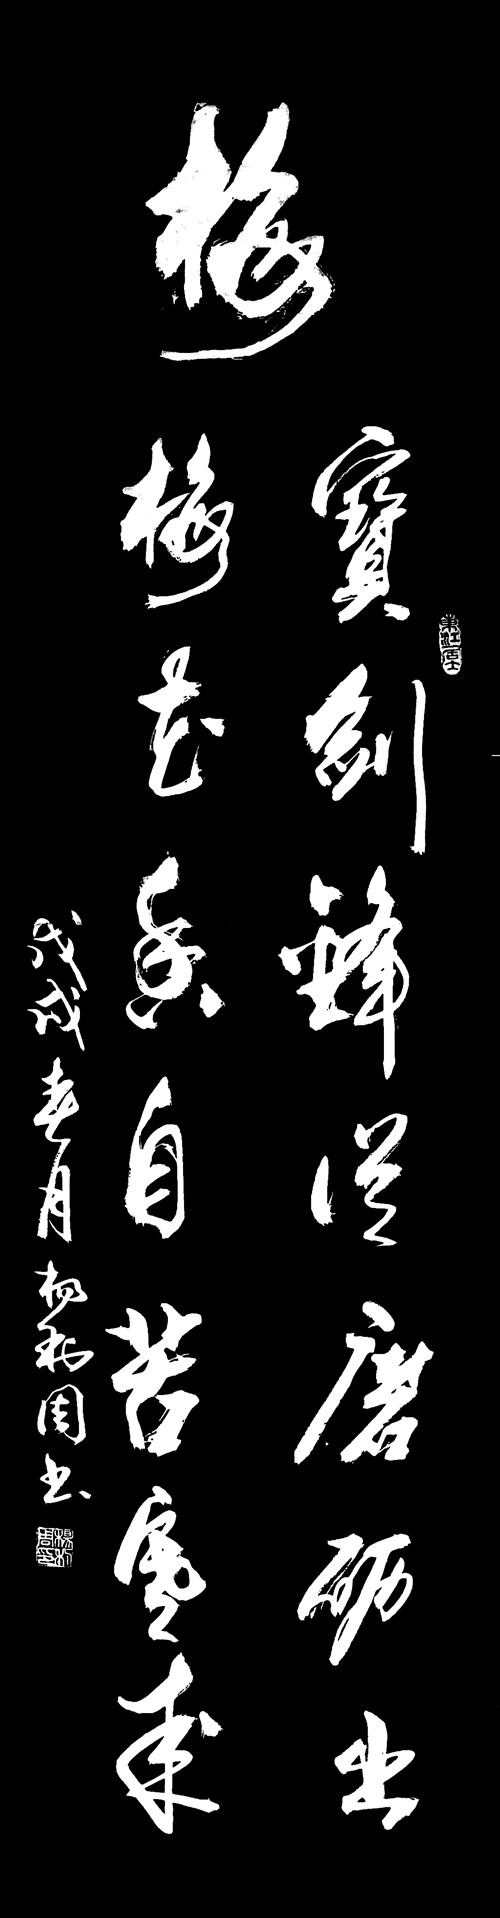 梅
寶劍鋒從磨砺出
梅花香自苦寒來
戊戌春月杨利周书